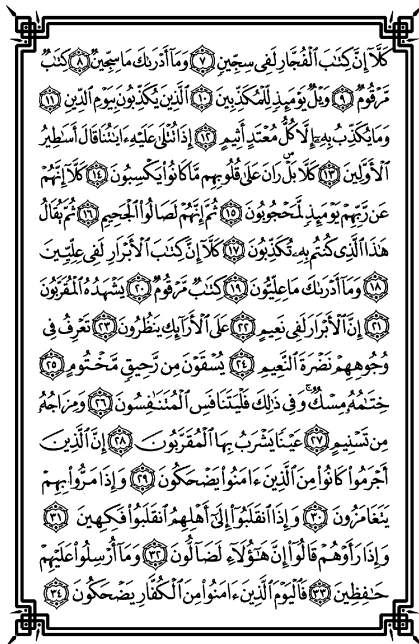 كَلَّا إِنَّ كِتَٰبَ ٱلْفُجَّارِ لَفِى سِجِّينٍ ٧ وَمَآ أَدْرَىٰكَ مَا سِجِّينٌ ٨ كِتَٰبٌ
مَّرْقُومٌ ٩ وَيْلٌ يَوْمَئِذٍ لِّلْمُكَذِّبِينَ ١٠ ٱلَّذِينَ يُكَذِّبُونَ بِيَوْمِ ٱلدِّينِ ١١
وَمَا يُكَذِّبُ بِهِۦٓ إِلَّا كُلُّ مُعْتَدٍ أَثِيمٍ ١٢ إِذَا تُتْلَىٰ عَلَيْهِ ءَايَٰتُنَا قَالَ أَسَٰطِيرُ
ٱلْأَوَّلِينَ ١٣ كَلَّا بَلْۜ رَانَ عَلَىٰ قُلُوبِهِم مَّا كَانُوا۟ يَكْسِبُونَ ١٤ كَلَّآ إِنَّهُمْ
عَن رَّبِّهِمْ يَوْمَئِذٍ لَّمَحْجُوبُونَ ١٥ ثُمَّ إِنَّهُمْ لَصَالُوا۟ ٱلْجَحِيمِ ١٦ ثُمَّ يُقَالُ
هَٰذَا ٱلَّذِى كُنتُم بِهِۦ تُكَذِّبُونَ ١٧ كَلَّآ إِنَّ كِتَٰبَ ٱلْأَبْرَارِ لَفِى عِلِّيِّينَ
١٨ وَمَآ أَدْرَىٰكَ مَا عِلِّيُّونَ ١٩ كِتَٰبٌ مَّرْقُومٌ ٢٠ يَشْهَدُهُ ٱلْمُقَرَّبُونَ
٢١ إِنَّ ٱلْأَبْرَارَ لَفِى نَعِيمٍ ٢٢ عَلَى ٱلْأَرَآئِكِ يَنظُرُونَ ٢٣ تَعْرِفُ فِى
وُجُوهِهِمْ نَضْرَةَ ٱلنَّعِيمِ ٢٤ يُسْقَوْنَ مِن رَّحِيقٍ مَّخْتُومٍ ٢٥
خِتَٰمُهُۥ مِسْكٌ ۚ وَفِى ذَٰلِكَ فَلْيَتَنَافَسِ ٱلْمُتَنَٰفِسُونَ ٢٦ وَمِزَاجُهُۥ
مِن تَسْنِيمٍ ٢٧ عَيْنًا يَشْرَبُ بِهَا ٱلْمُقَرَّبُونَ ٢٨ إِنَّ ٱلَّذِينَ
أَجْرَمُوا۟ كَانُوا۟ مِنَ ٱلَّذِينَ ءَامَنُوا۟ يَضْحَكُونَ ٢٩ وَإِذَا مَرُّوا۟ بِهِمْ
يَتَغَامَزُونَ ٣٠ وَإِذَا ٱنقَلَبُوٓا۟ إِلَىٰٓ أَهْلِهِمُ ٱنقَلَبُوا۟ فَكِهِينَ ٣١
وَإِذَا رَأَوْهُمْ قَالُوٓا۟ إِنَّ هَٰٓؤُلَآءِ لَضَآلُّونَ ٣٢ وَمَآ أُرْسِلُوا۟ عَلَيْهِمْ
حَٰفِظِينَ ٣٣ فَٱلْيَوْمَ ٱلَّذِينَ ءَامَنُوا۟ مِنَ ٱلْكُفَّارِ يَضْحَكُونَ ٣٤